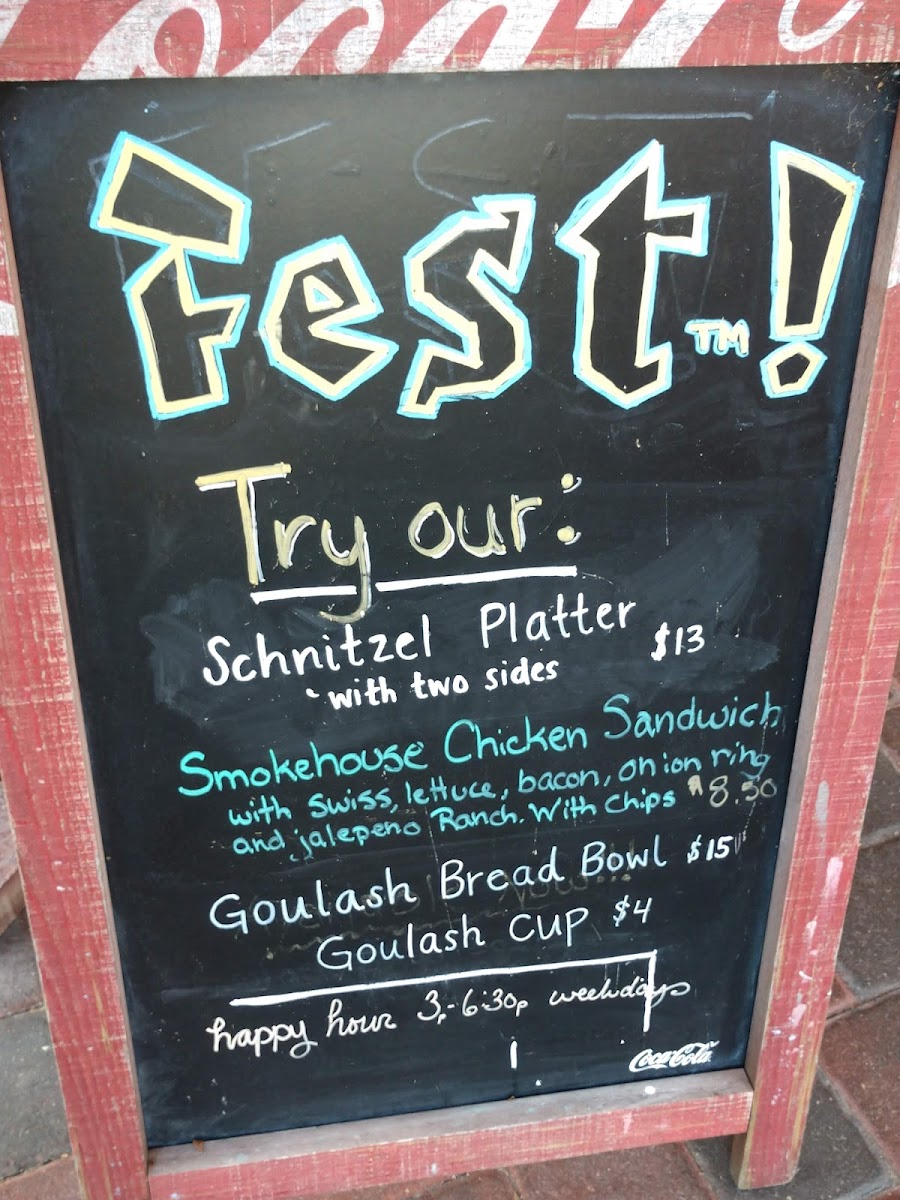 Fest™!
Try our:
Schnitzel Platter $13
with two sides
Smokehouse Chicken Sandwich
with swiss, lettuce, bacon, onion ring
and jalepeno Ranch. With Chips $8.50
Goulash Bread Bowl $15
Goulash cup $4
happy hour 3p-6:30p weekdays
Coca-Cola